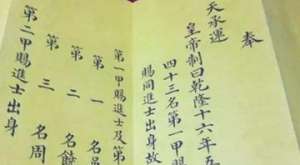 奉
天承運
皇帝制曰乾隆十六年五
四十三名第一甲賜
賜同進士出身故
第一甲賜進士及第
第一名
第二名饒
第三名周
第二甲賜進士出身